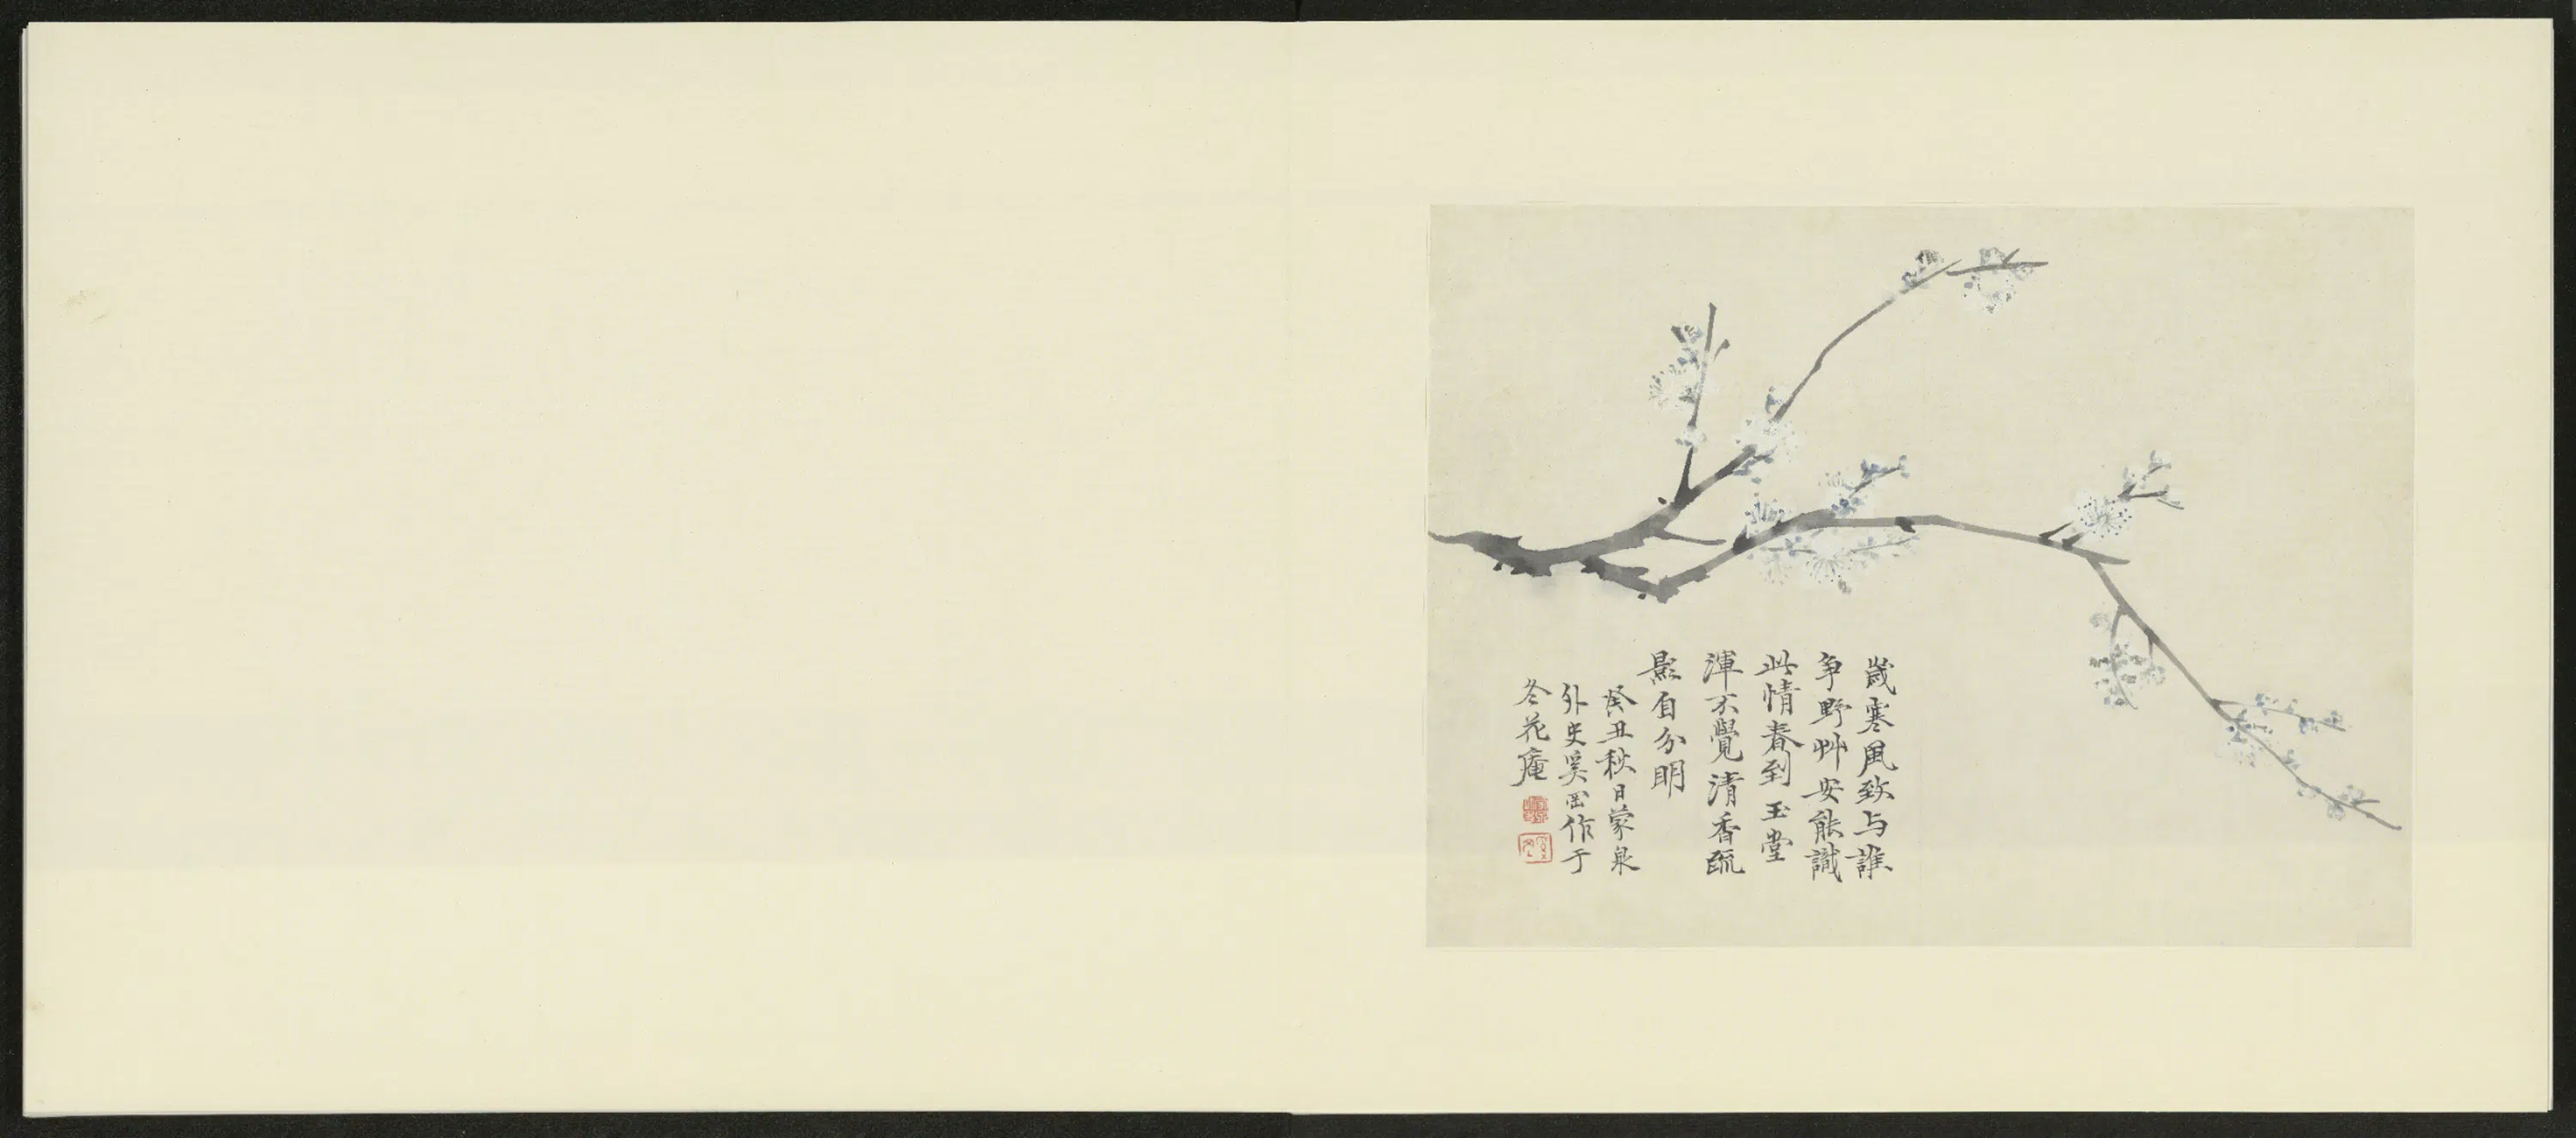 歲寒風致与誰
爭野艸安能識
此情春到玉堂
渾不覺清香疏
影自分明
癸丑秋日蒙泉
外史奚岡作于
冬花庵